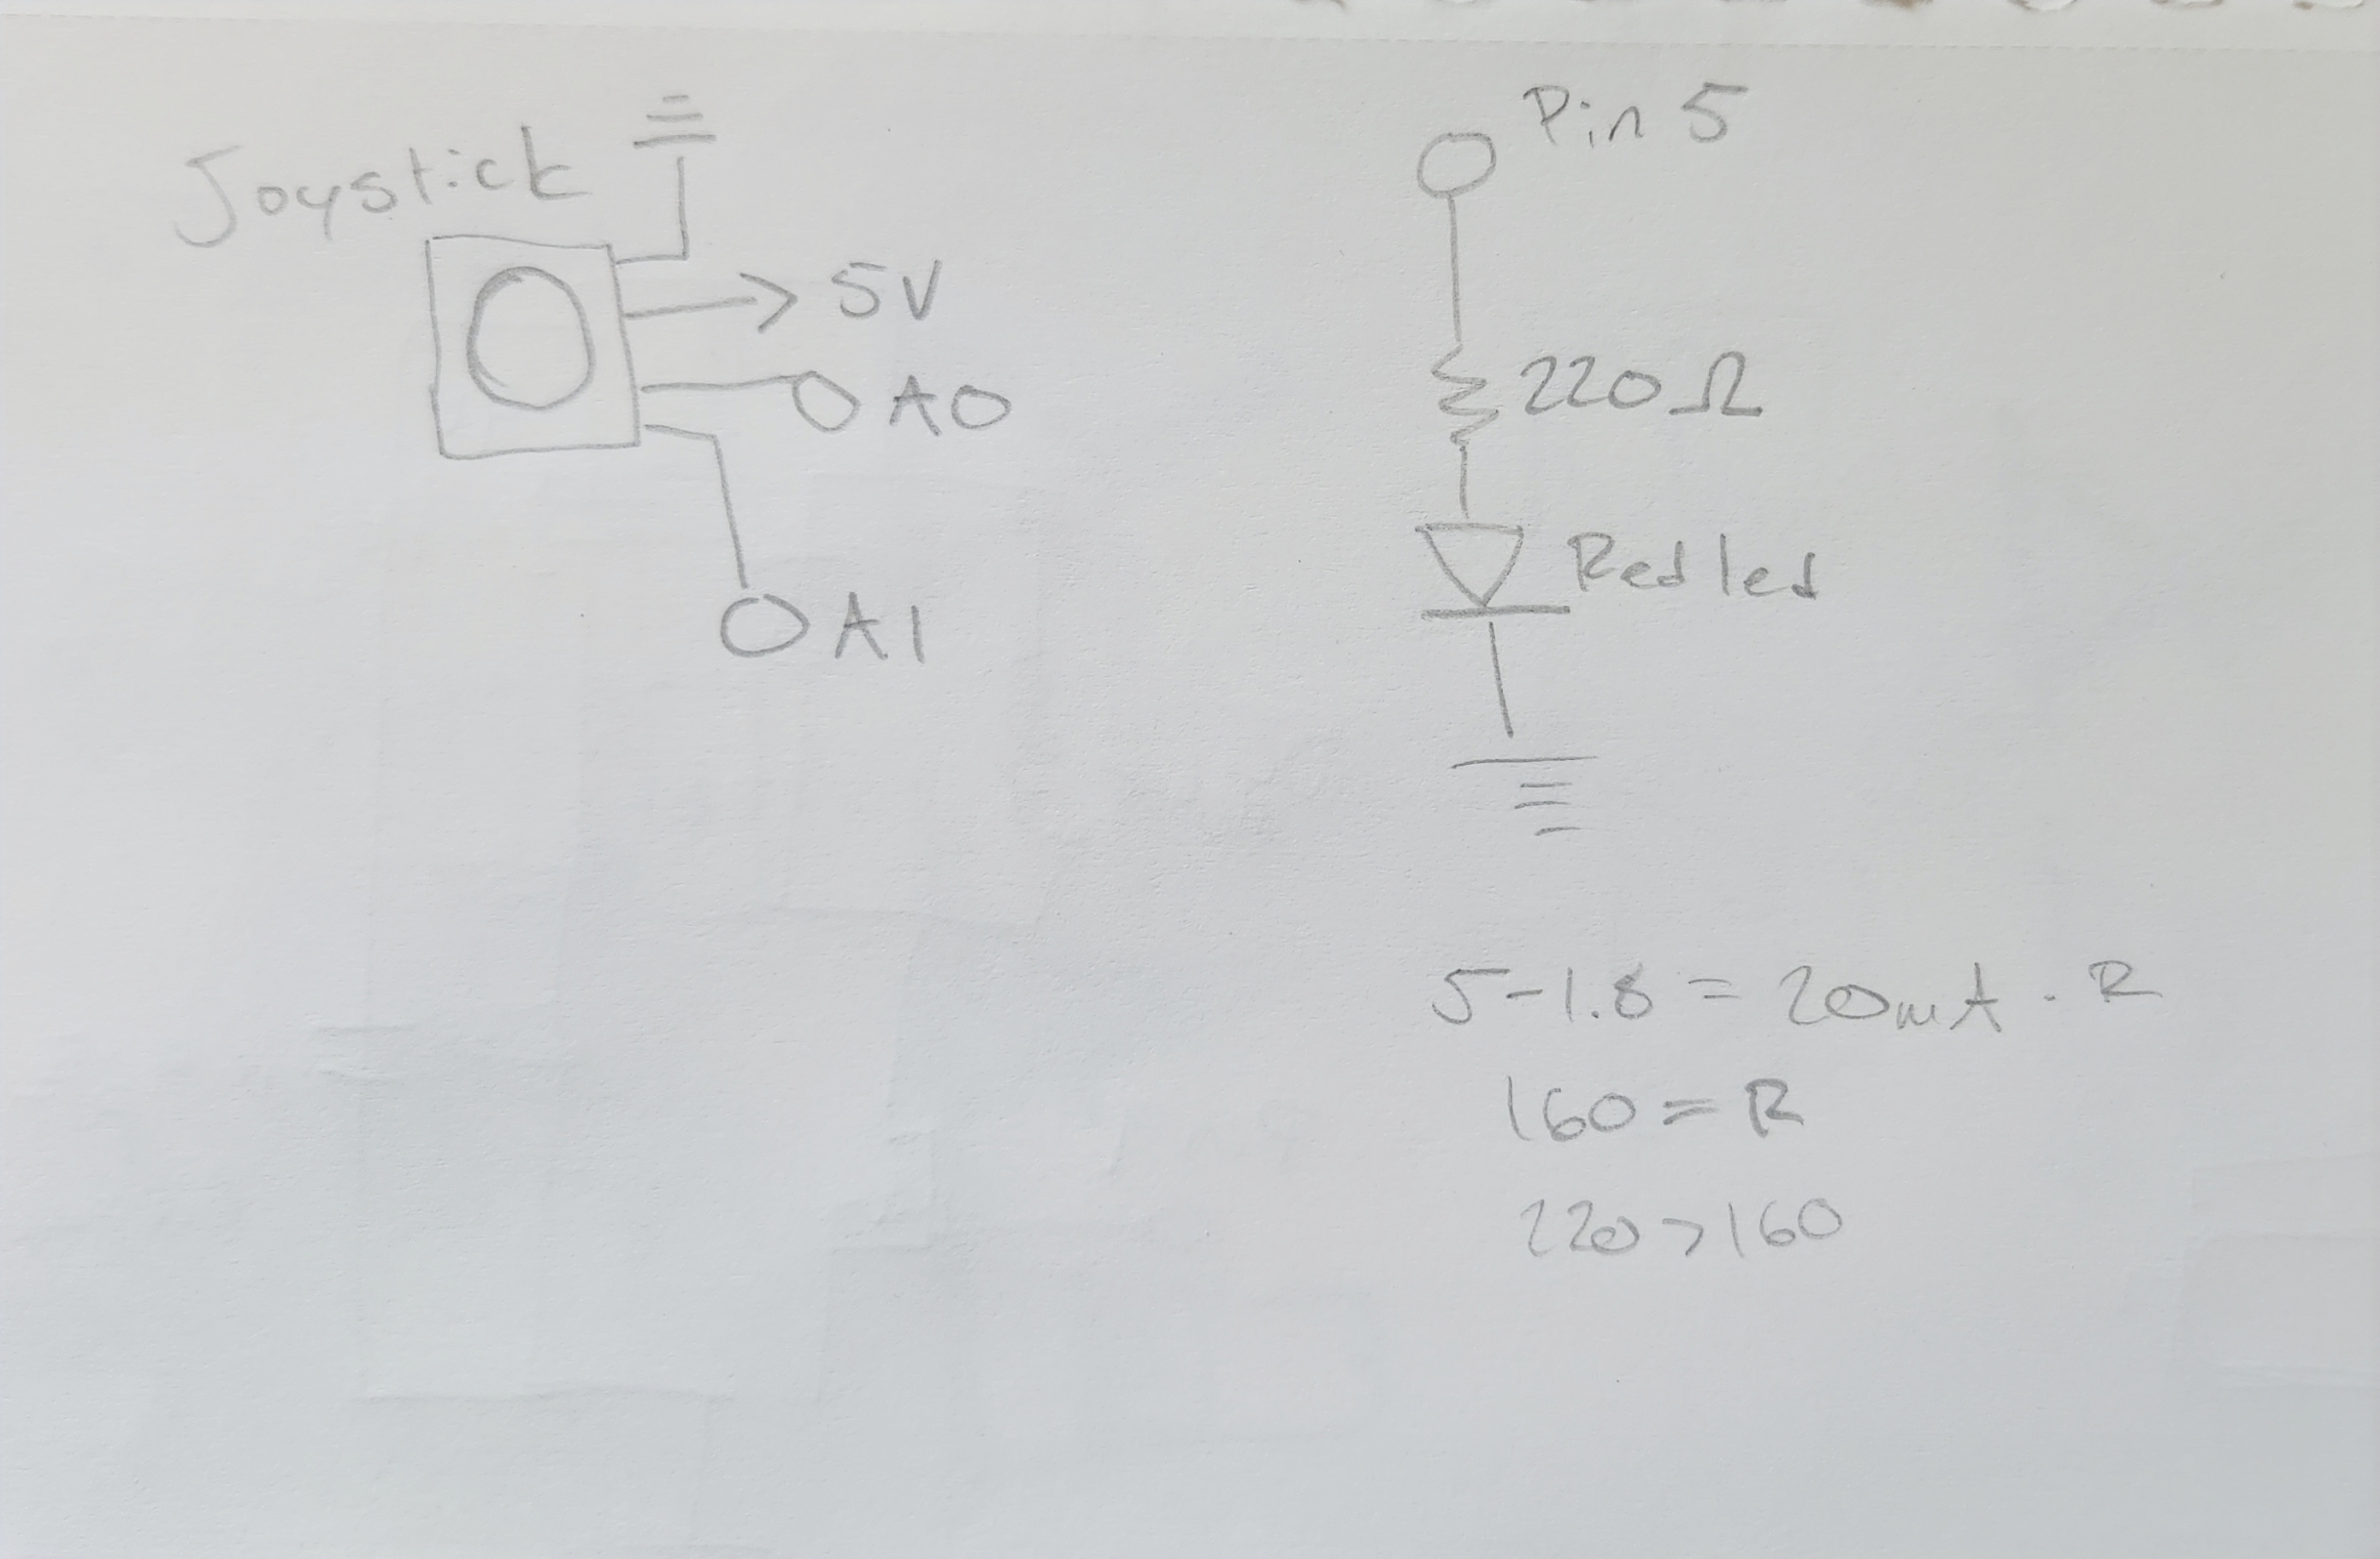 Joystick
5V
A0
A1
Pin 5
220Ω
Red led
5-1.8 = 20mA · R
160 = R
220 > 160